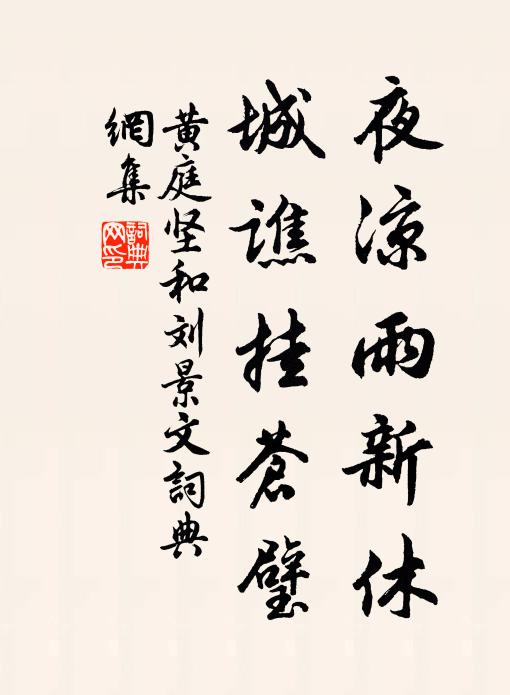 夜凉雨新休
城谯挂苍璧
黄庭坚和刘景文词典
網集
詞典
网印